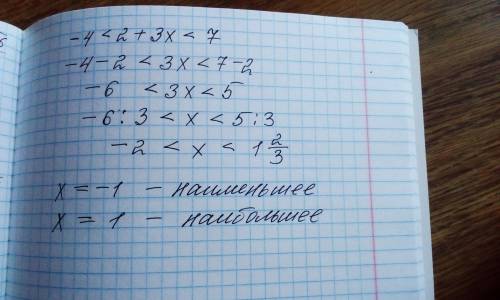 -4 < 2 + 3x < 7
-4 - 2 < 3x < 7 - 2
-6 < 3x < 5
-6 : 3 < x < 5 : 3
-2 < x < 1 2/3
x = -1 — наименьшее
x = 1 — наибольшее